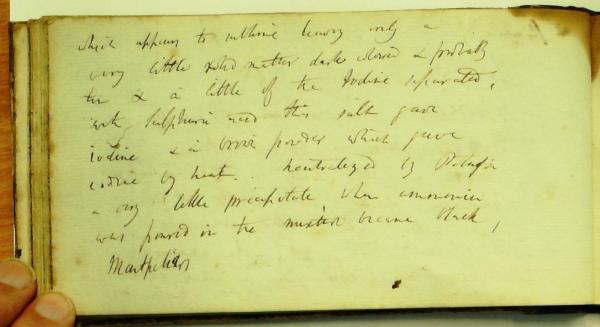 which appears to sublime leaving only a
very little solid matter dark colored & probably
& a little of the Iodine separated,
with Sulphuric acid this salt gave
iodine & a brown powder which gave
iodine by heat. neutralized by Potash
a very little precipitate when ammonia
was poured in the mixture became black,
Montpelier